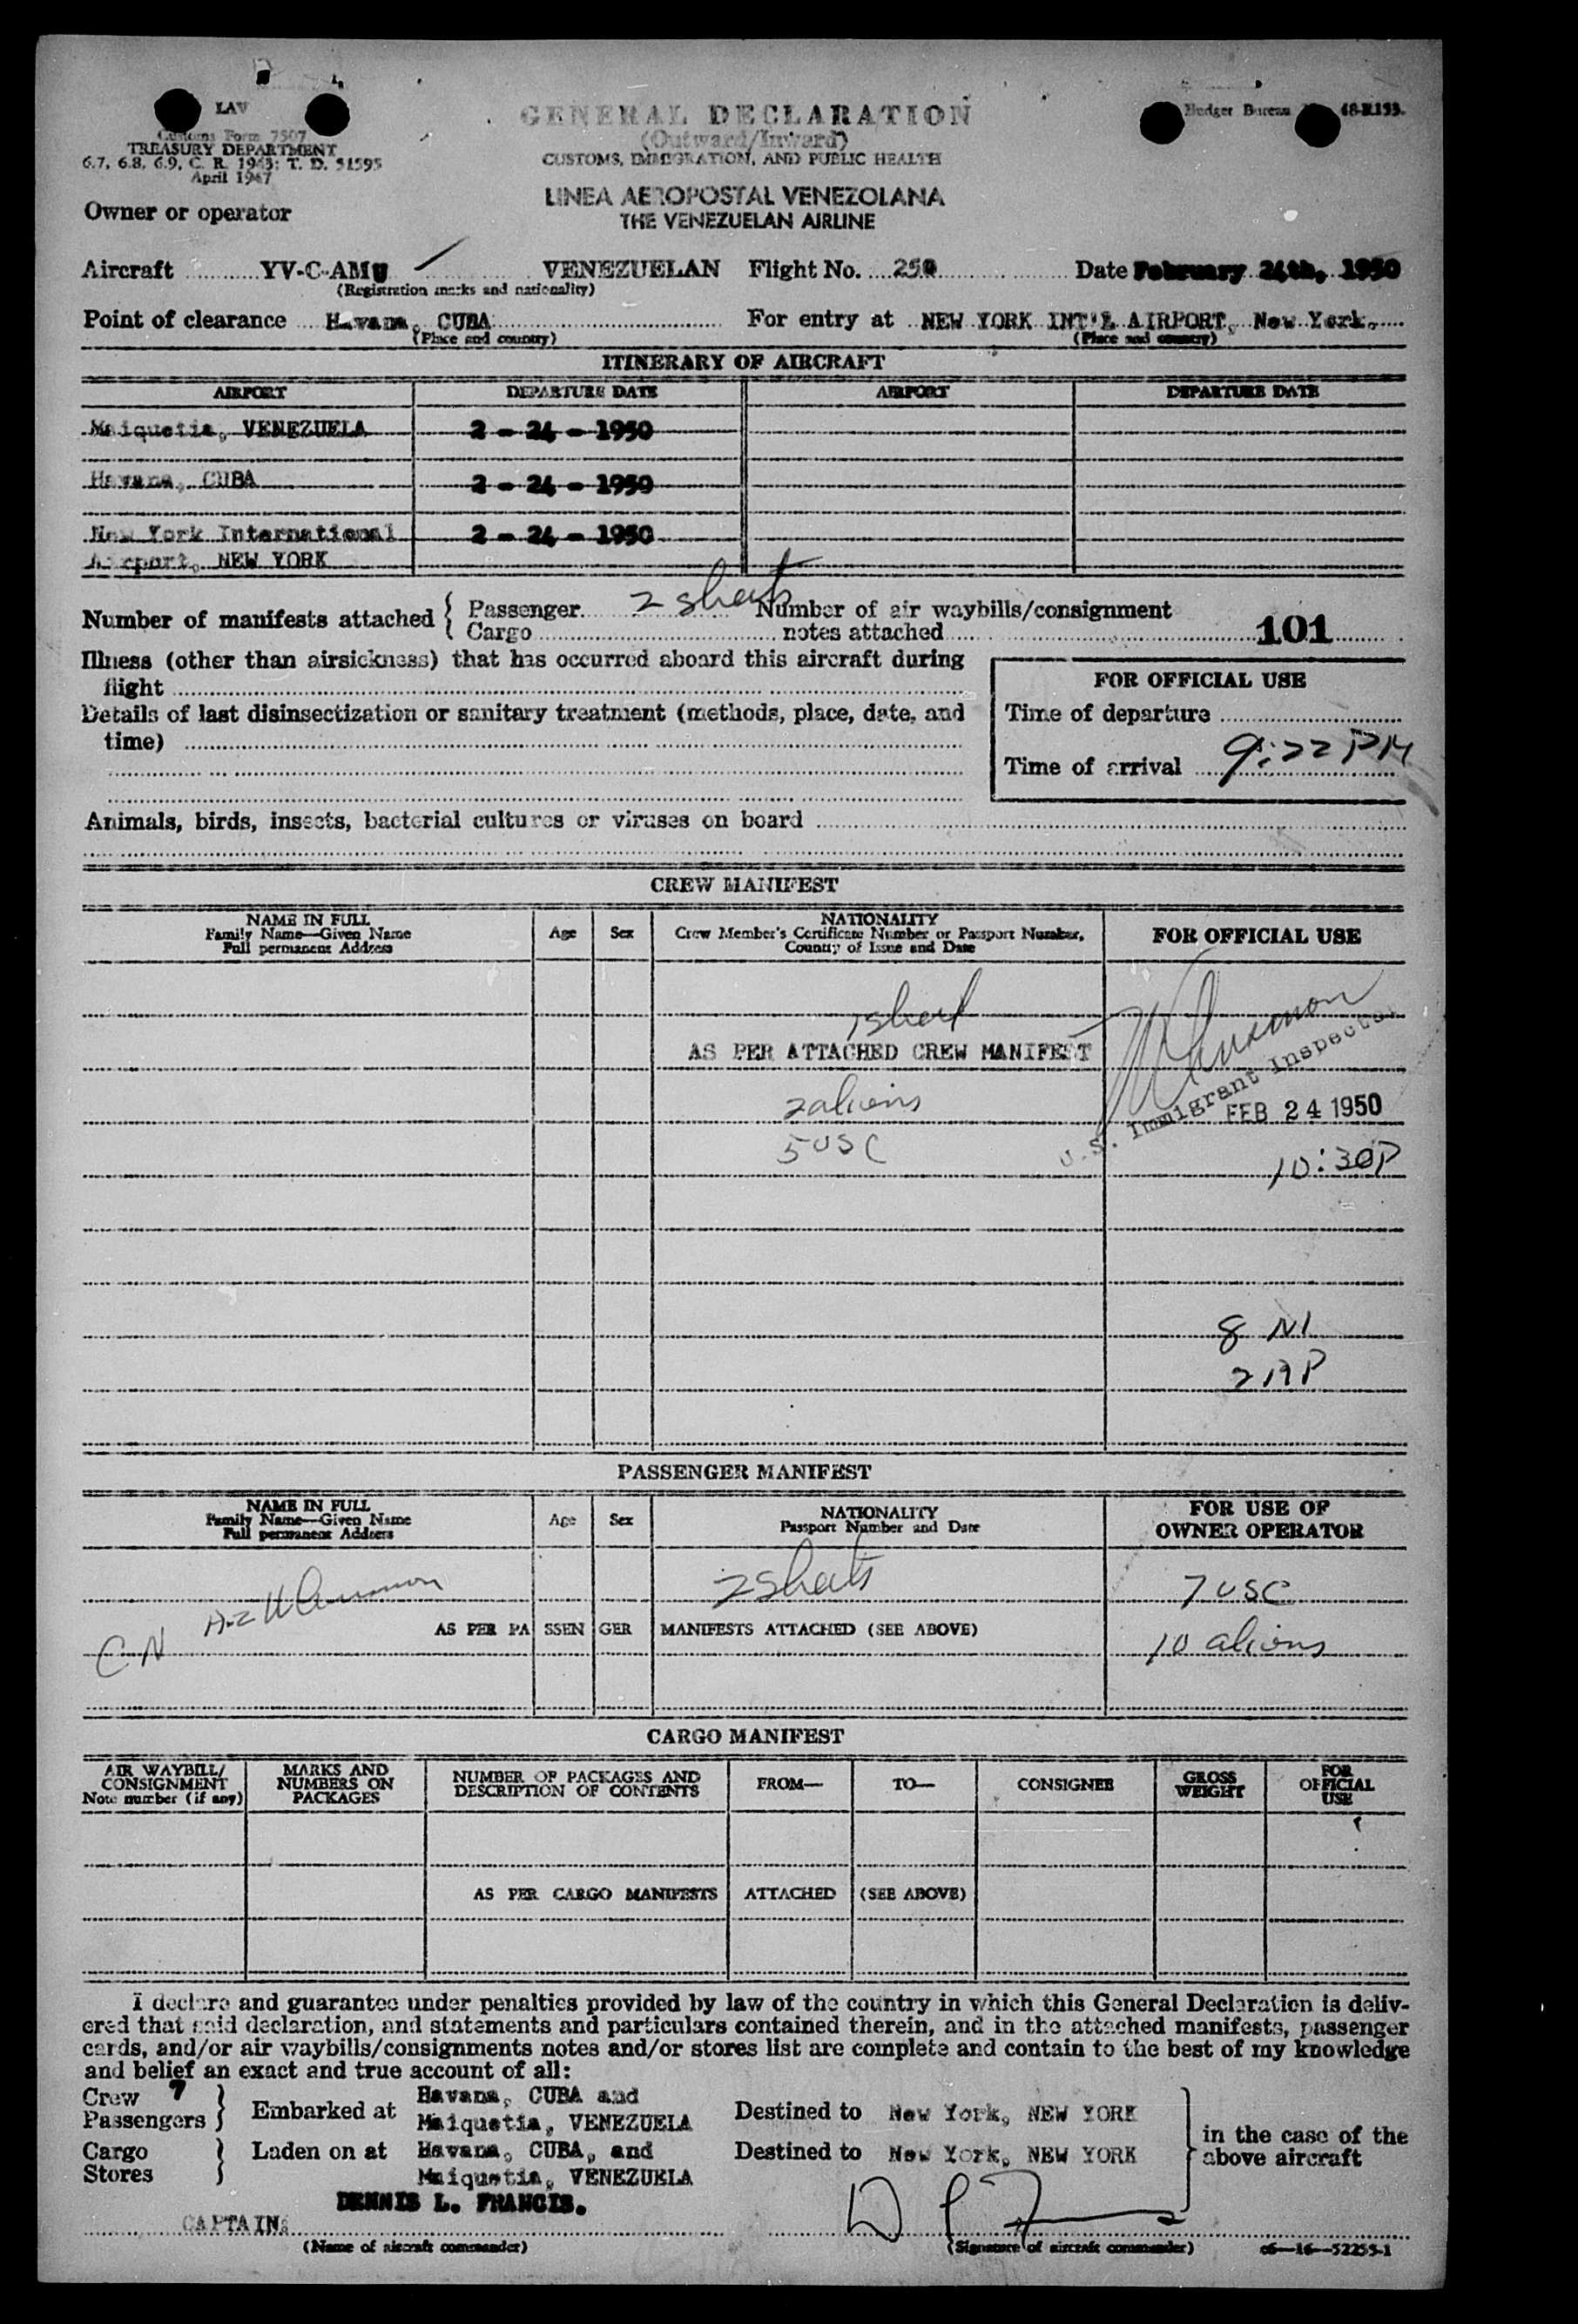 LAV
Customs Form 7507
TREASURY DEPARTMENT
6.7, 6.8, 6.9, C. R. 1943; T. D. 51595
April 1947
GENERAL DECLARATION
(Outward/Inward)
CUSTOMS, IMMIGRATION, AND PUBLIC HEALTH
Budget Bureau 48-R133.
LINEA AEROPOSTAL VENEZOLANA
THE VENEZUELAN AIRLINE
Owner or operator
Aircraft YV-C-AMU VENEZUELAN Flight No. 250 Date February 24th, 1950
(Registration marks and nationality)
Point of clearance Havana, CUBA For entry at NEW YORK INT'L AIRPORT, New York.
(Place and country) (Place and country)
ITINERARY OF AIRCRAFT
AIRPORT DEPARTURE DATE AIRPORT DEPARTURE DATE
Maiquetia, VENEZUELA 2 - 24 - 1950
Havana, CUBA 2 - 24 - 1950
New York International 2 - 24 - 1950
Airport, NEW YORK
Number of manifests attached { Passenger 2 sheets Number of air waybills/consignment
Cargo notes attached 101
Illness (other than airsickness) that has occurred aboard this aircraft during
flight
FOR OFFICIAL USE
Details of last disinsectization or sanitary treatment (methods, place, date, and
time)
Time of departure
Time of arrival 9:22 PM
Animals, birds, insects, bacterial cultures or viruses on board
CREW MANIFEST
NAME IN FULL
Family Name—Given Name
Full permanent Address
Age Sex
NATIONALITY
Crew Member's Certificate Number or Passport Number,
Country of Issue and Date
FOR OFFICIAL USE
1 sheet
AS PER ATTACHED CREW MANIFEST
U.S. Immigrant Inspector
2 aliens
FEB 24 1950
5 USC
10:30P
8 NI
2 HP
PASSENGER MANIFEST
NAME IN FULL
Family Name—Given Name
Full permanent Address
Age Sex
NATIONALITY
Passport Number and Date
FOR USE OF
OWNER OPERATOR
2 Sheets
7 USC
AS PER PASSENGER MANIFESTS ATTACHED (SEE ABOVE)
C N
10 aliens
CARGO MANIFEST
AIR WAYBILL/
CONSIGNMENT
Note number (if any)
MARKS AND
NUMBERS ON
PACKAGES
NUMBER OF PACKAGES AND
DESCRIPTION OF CONTENTS
FROM—
TO—
CONSIGNEE
GROSS
WEIGHT
FOR
OFFICIAL
USE
AS PER CARGO MANIFESTS ATTACHED (SEE ABOVE)
I declare and guarantee under penalties provided by law of the country in which this General Declaration is deliv-
ered that said declaration, and statements and particulars contained therein, and in the attached manifests, passenger
cards, and/or air waybills/consignments notes and/or stores list are complete and contain to the best of my knowledge
and belief an exact and true account of all:
Crew 7
Passengers } Embarked at Havana, CUBA and
Maiquetia, VENEZUELA
Destined to New York, NEW YORK
Cargo
Stores } Laden on at Havana, CUBA, and
Maiquetia, VENEZUELA
Destined to New York, NEW YORK
in the case of the
above aircraft
DENNIS L. FRANCIS.
CAPTAIN:
(Name of aircraft commander) (Signature of aircraft commander) c6—16—52255-1